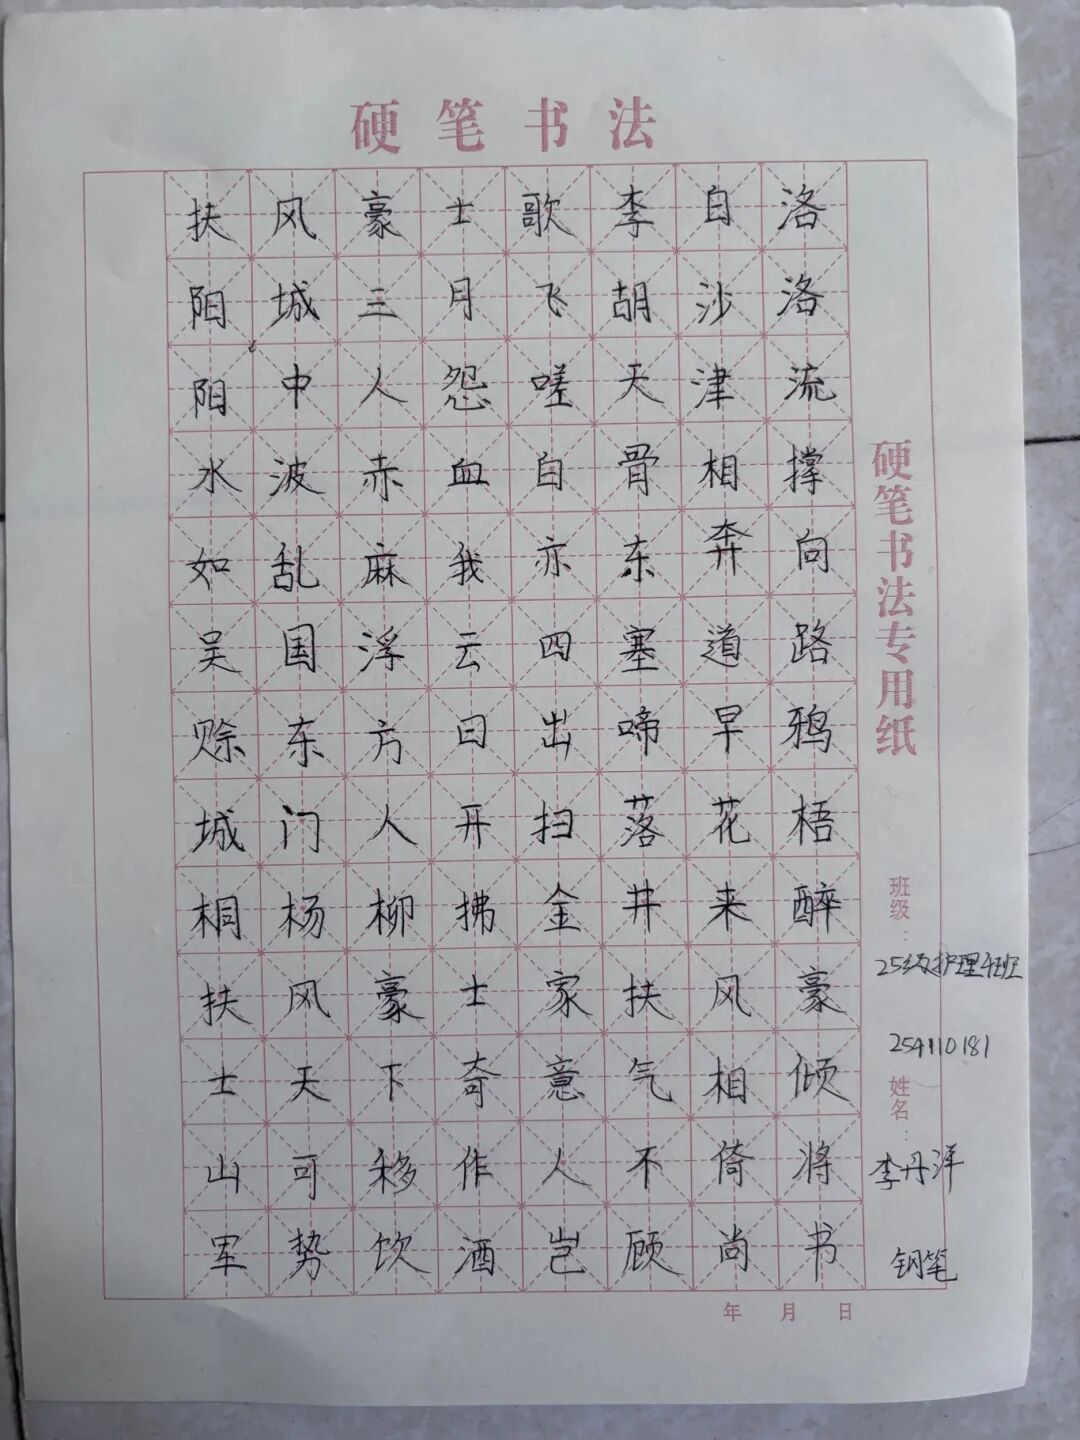 硬笔书法
扶风豪士歌李白洛
阳城三月飞胡沙洛
阳中人怨嗟天津流
水波赤血白骨相撑
如乱麻我亦东奔向
吴国浮云四塞道路
赊东方日出啼早鸦
城门人开扫落花梧
桐杨柳拂金井来醉
扶风豪士家扶风豪
士天下奇意气相倾
山可移作人不倚将
军势饮酒岂顾尚书
硬笔书法专用纸
班级：
25级护理4班
254110181
姓名：
李丹洋
钢笔
年 月 日